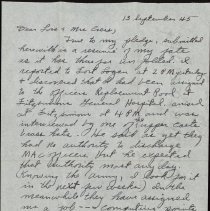 13 September 45
Dear Lora & Mrs. Essie,
True to my pledge, submitted
herewith is a resume of my fate
as it has thus far jelled. I
reported to Fort Logan at 2 PM yesterday
& discovered that I had been assigned
to the Officers Replacement Pool at
Fitzsimons General Hospital, arrived
at Fitzsimons at 4 PM and was
interviewed by the
He said as yet they
had no authority to discharge
MAC officers but he expected
that authority most any day.
Knowing the army, I look for it
in the next few weeks! In the
meanwhile they have assigned
me a job — computing points